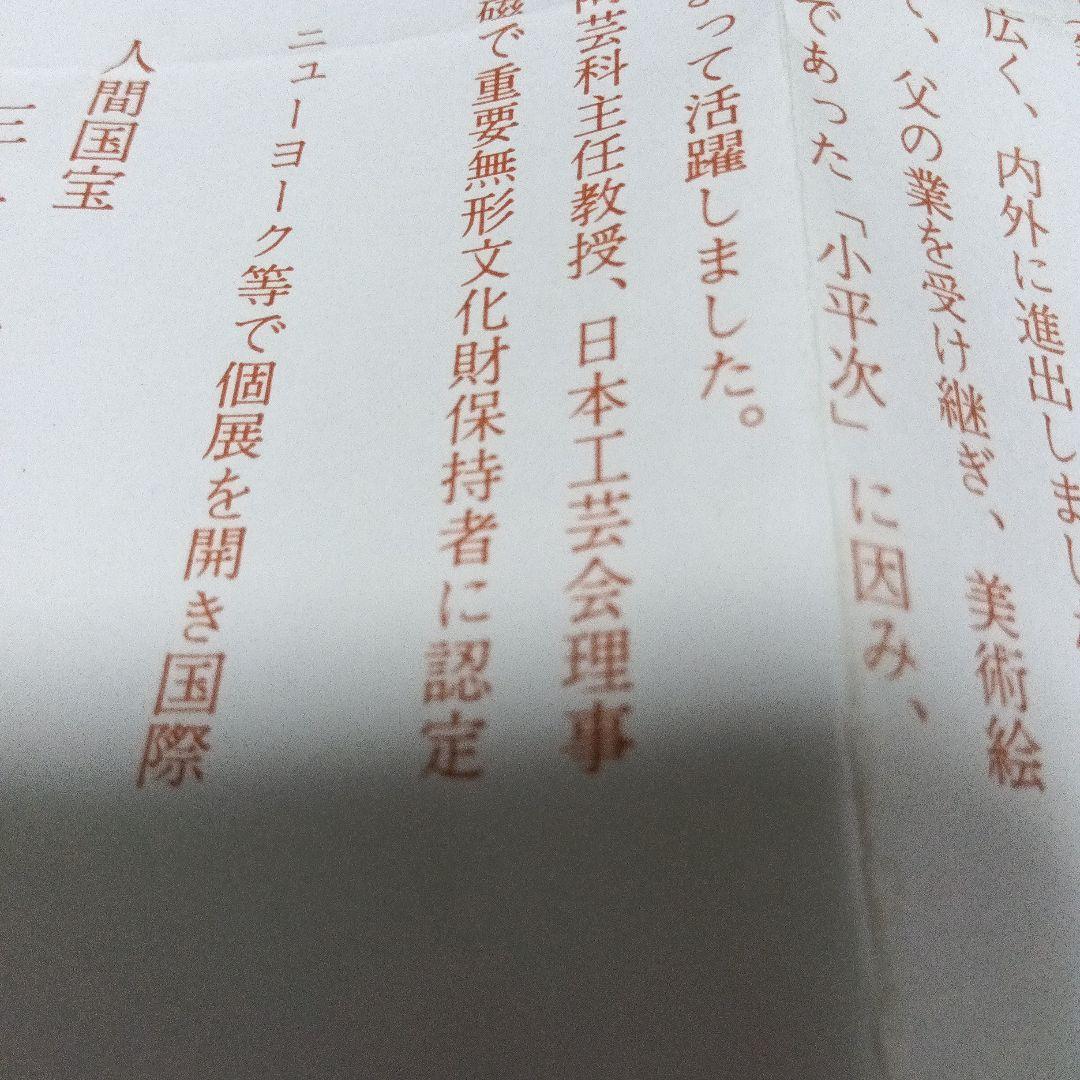 広く、内外に進出しまし
て、父の業を受け継ぎ、美術絵
であった「小平次」に因み、
って活躍しました。
芸科主任教授、日本工芸会理事
磁で重要無形文化財保持者に認定
ニューヨーク等で個展を開き国際
人間国宝
三